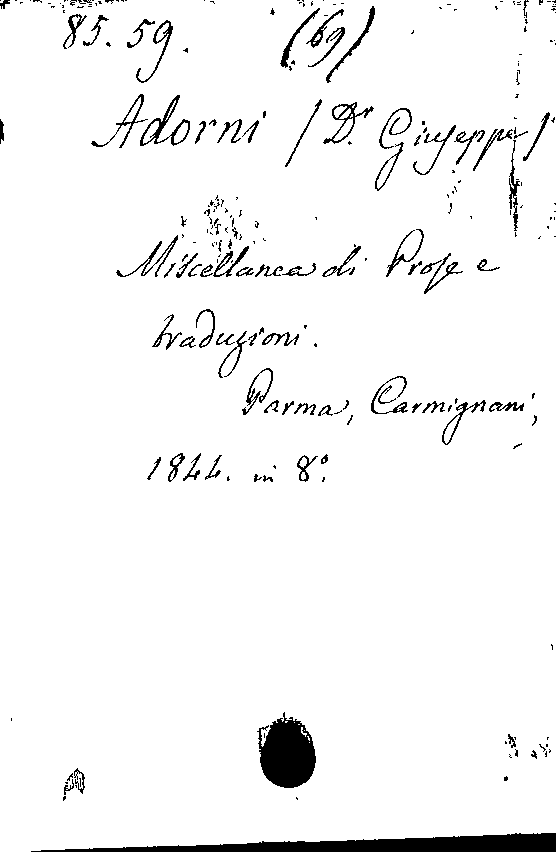 85.59. (69)
Adorni / Dr. Giuseppe /
Miscellanea di Prose e
traduzioni.
Parma, Carmignani,
1844. in 8°.